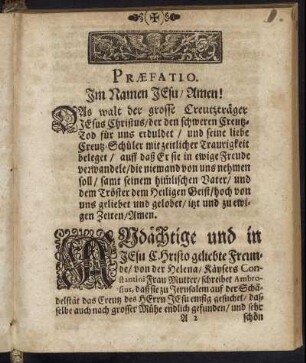 PRÆFATIO.
Im Namen JEsu/ Amen!
DAs walt der grosse Creutzträger
JEsus Christus/ der den schweren Creutz-
Tod für uns erduldet / und seine liebe
Creutz-Schüler mit zeitlicher Traurigkeit
beleget / auff daß Er sie in ewige Freude
verwandele/ die niemand von uns nehmen
soll/ samt seinem himlischen Vater/ und
dem Tröster dem Heiligen Geist/ hoch von
uns geliebet und gelobet/ itzt und zu ewi-
gen Zeiten/ Amen.
ANdächtige und in
JEsu CHristo geliebte Freun-
de/ von der Helena/ Käysers Con-
stantini Frau Mutter/ schreibet Ambro-
sius, daß sie zu Jerusalem auf der Schä-
delstät das Creutz des HErrn JEsu emsig gesuchet/ das-
selbe auch nach grosser Mühe endlich gefunden/ und sehr
A 2 schön